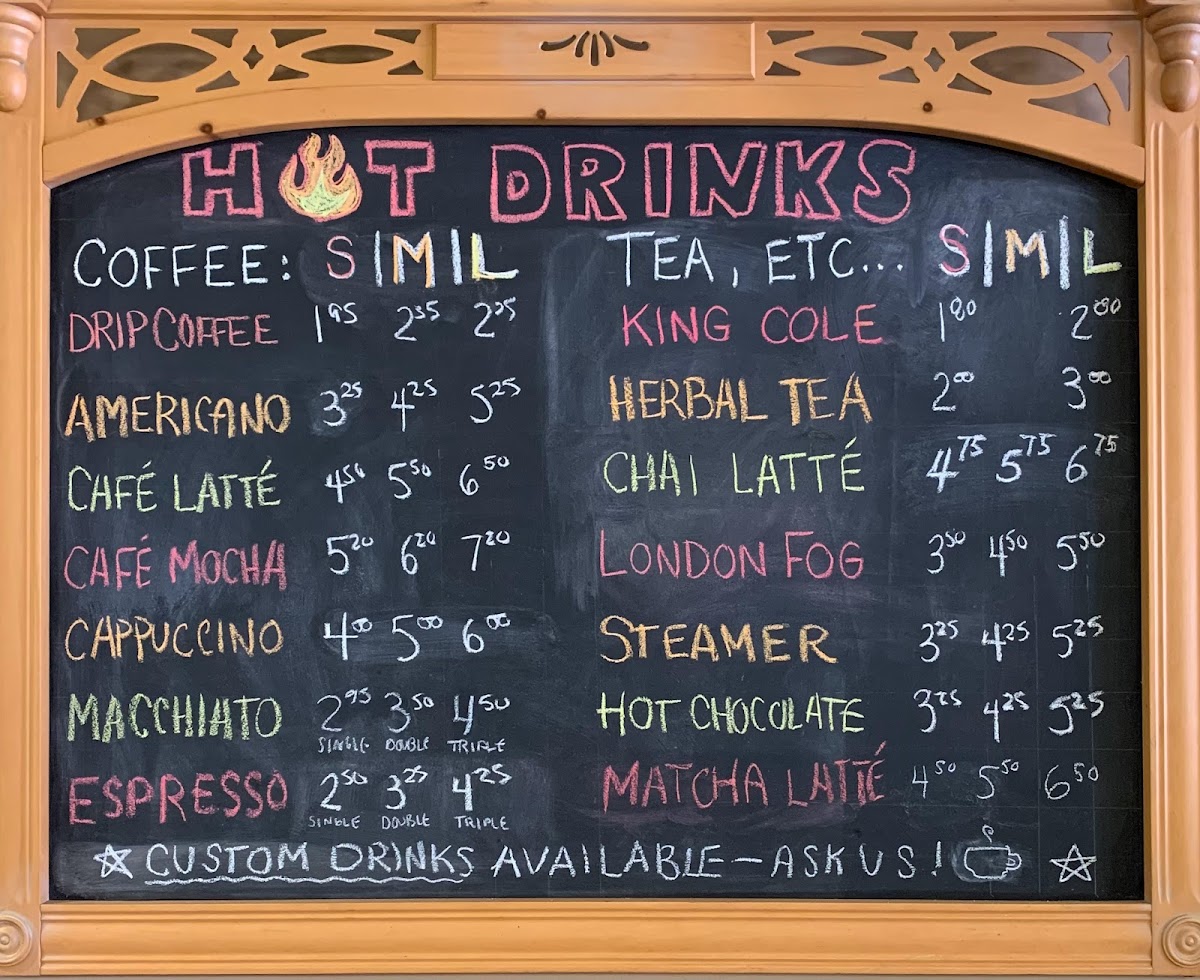 HOT DRINKS
COFFEE: S|M|L
DRIP COFFEE 1.95 2.35
AMERICANO 3.25 4.25 5.25
CAFÉ LATTÉ 4.50 5.50 6.50
CAFÉ MOCHA 5.20 6.20 7.20
CAPPUCCINO 4.00 5.00 6.00
MACCHIATO 2.95 3.50 4.50
SINGLE DOUBLE TRIPLE
ESPRESSO 2.50 3.25 4.25
SINGLE DOUBLE TRIPLE
TEA, ETC... S|M|L
KING COLE 1.80 2.80
HERBAL TEA 2.00 3.00
CHAI LATTÉ 4.75 5.75 6.75
LONDON FOG 3.50 4.50 5.50
STEAMER 3.25 4.25 5.25
HOT CHOCOLATE 3.25 4.25 5.25
MATCHA LATTÉ 4.50 5.50 6.50
CUSTOM DRINKS AVAILABLE - ASK US!